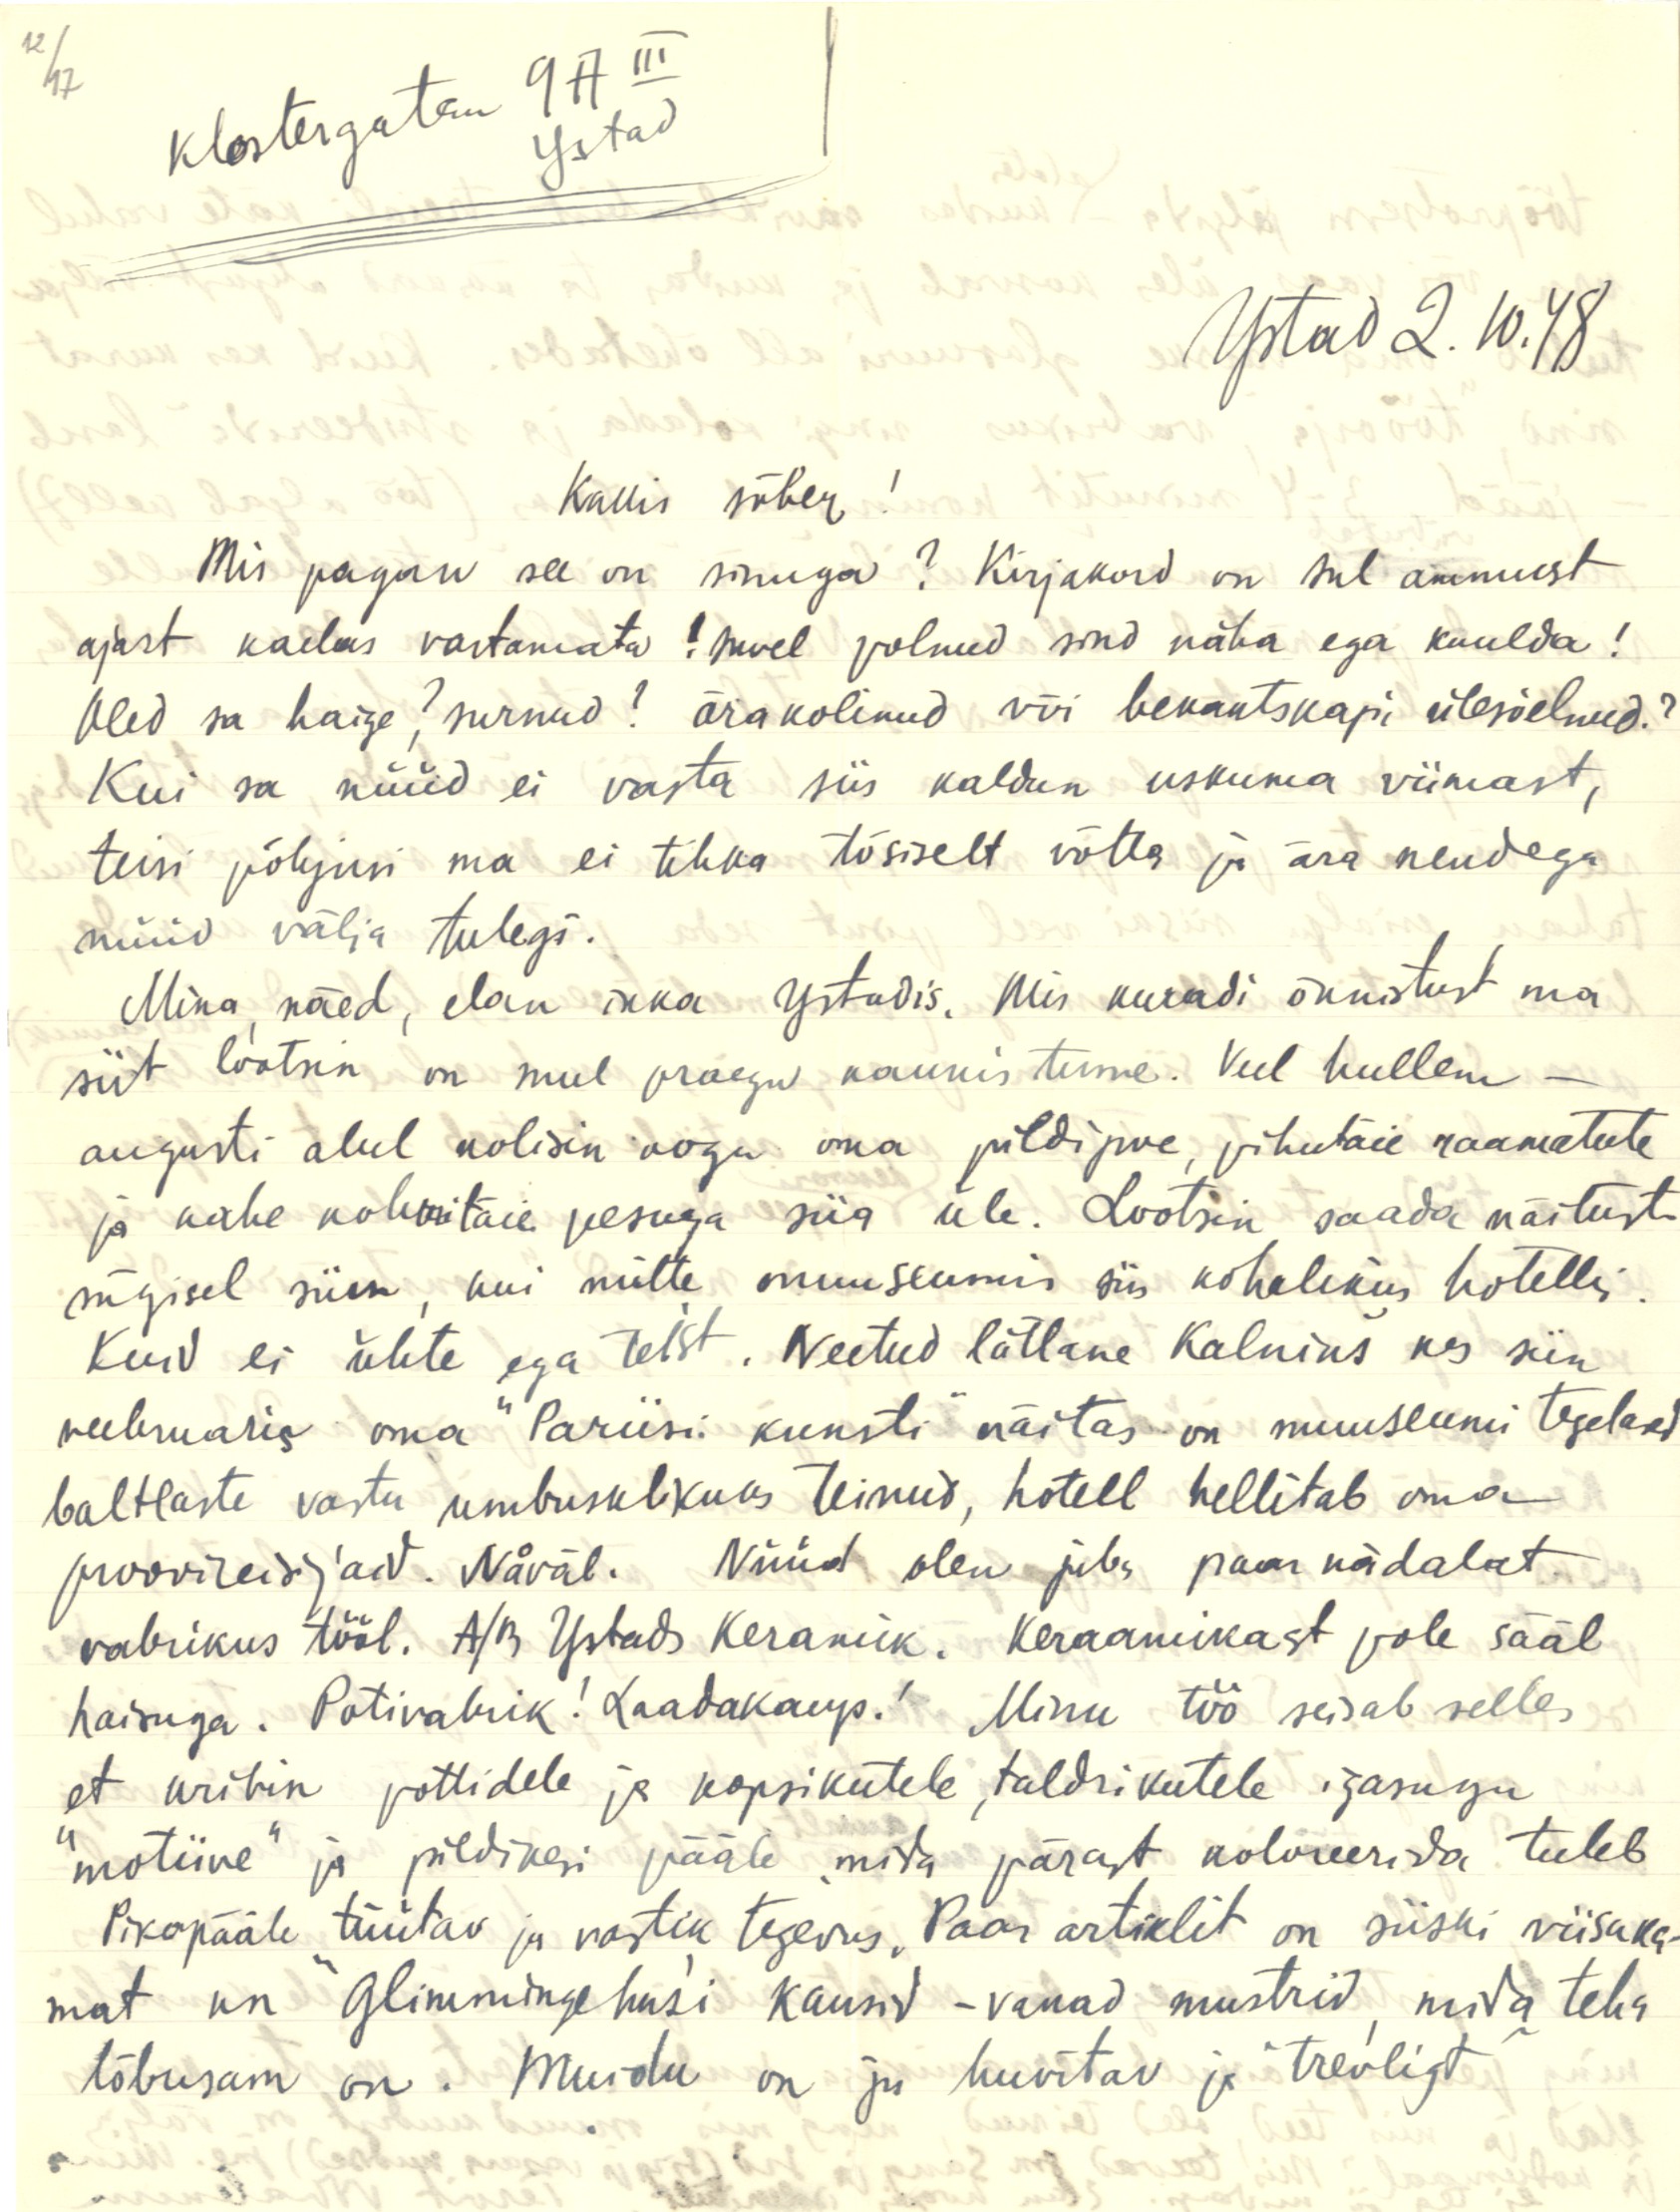 12/17
Klostergatan 9 A III
Ystad
Ystad 2. 10. 48
Kallis sõber!
Mis pagan see on sinuga? Kirjakord on sul ammust
ajast kaelas vastamata! Suvel polnud sind näha ega kuulda!
Oled sa haige, ? surnud? ärakolinud või bekantskapi ülesöelnud.?
Kui sa nüüd ei vasta siis kaldun uskuma viimast,
teisi põhjusi ma ei tihka tõsiselt võtta ja ära nendega
nüüd välja tulegi.
Mina, näed, elan ikka Ystadis. Mis kuradi õnnistust ma
siit lootsin on mul praegu kaunis tume. Veel hullem —
augusti alul kolisin kogu oma pildipoe, pihutäie raamatute
ja kahe kohvritäie pesuga siia üle. Lootsin saada näitust
sügisel siin, kui mitte muuseumis siis kohalikus hotellis.
Kuid ei ühte ega teist. Neetud lätlane Kalninš kes siin
veebruaris oma "Pariisi kunsti" näitas on muuseumi tegelased
baltlaste vastu umbusklikuks teinud, hotell hellitab oma
proovireisijaid. Nåväl. Nüüd olen juba paar nädalat
vabrikus tööl. A/B Ystads Keramik. Keraamikast pole sääl
haisuga. Potivabrik! Laadakaup! Minu töö seisab selles
et kribin pottidele ja kopsikutele, taldrikutele igasugu
"motiive" ja pildikesi pääle mida pärast koloreerida tuleb
Pikapääle tüütav ja vastik tegevus. Paar artiklit on siiski viisaka-
mat kn "Glimmingehusi kausid - vanad mustrid, mida teha
lõbusam on. Muidu on ju huvitav ja "trevligt"